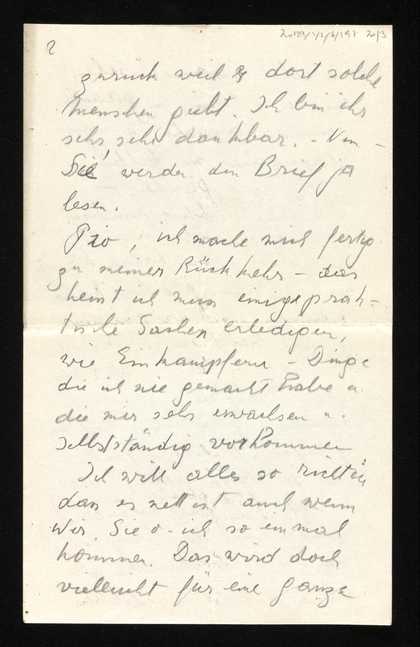 2
zurück weil es dort solche
Menschen giebt. Ich bin ihr
sehr, sehr dankbar. - Nun -
Sie werden den Brief ja
lesen.
ich mache mich fertig
zu meiner Rückkehr - das
heisst ich muss einige prak-
tische Sachen erledigen,
wie Einkäufe - Dinge
die ich nie gemacht habe u.
die mir sehr erwachsen u.
selbstständig vorkommen
Ich will alles so richten
dass es nett ist auch wenn
wir, Sie u. ich so einmal
kommen. Das wird doch
vielleicht für eine ganze